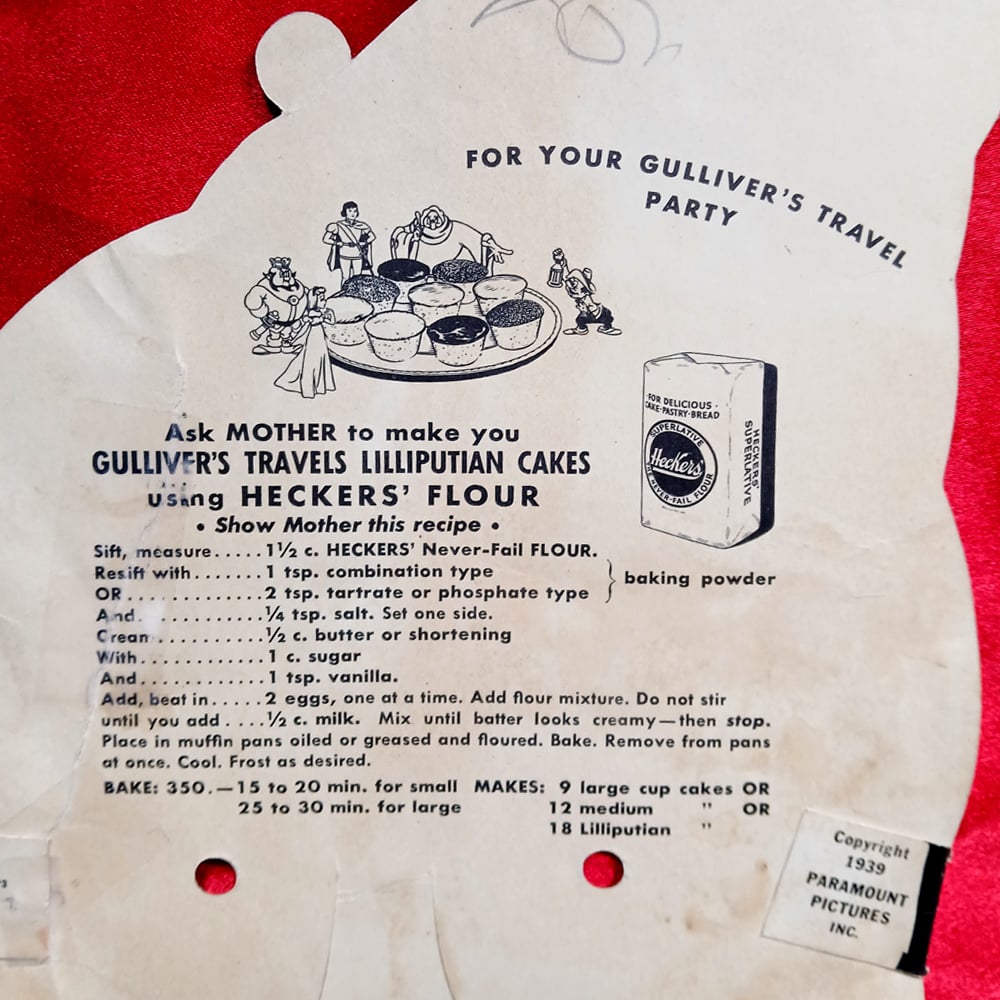 FOR YOUR GULLIVER'S TRAVEL
PARTY
·FOR DELICIOUS·
CAKE·PASTRY·BREAD
SUPERLATIVE
Heckers'
NEVER-FAIL FLOUR
HECKERS'
SUPERLATIVE
Ask MOTHER to make you
GULLIVER'S TRAVELS LILLIPUTIAN CAKES
using HECKERS' FLOUR
• Show Mother this recipe •
Sift, measure.....1½ c. HECKERS' Never-Fail FLOUR.
Resift with.......1 tsp. combination type
OR.............2 tsp. tartrate or phosphate type } baking powder
And............¼ tsp. salt. Set one side.
Cream..........½ c. butter or shortening
With............1 c. sugar
And............1 tsp. vanilla.
Add, beat in.....2 eggs, one at a time. Add flour mixture. Do not stir
until you add....½ c. milk. Mix until batter looks creamy—then stop.
Place in muffin pans oiled or greased and floured. Bake. Remove from pans
at once. Cool. Frost as desired.
BAKE: 350.—15 to 20 min. for small MAKES: 9 large cup cakes OR
25 to 30 min. for large 12 medium " OR
18 Lilliputian "
Copyright
1939
PARAMOUNT
PICTURES
INC.